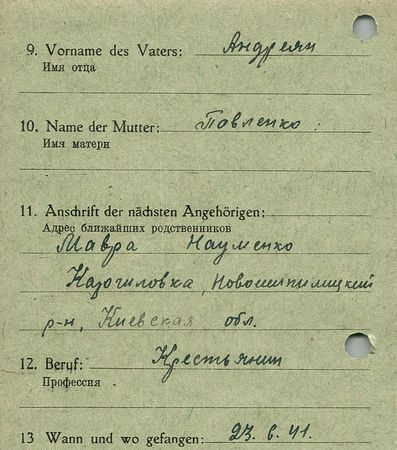 9. Vorname des Vaters: Андреян
Имя отца
10. Name der Mutter: Павленко
Имя матери
11. Anschrift der nächsten Angehörigen:
Адрес ближайших родственников
Мавра Науменко
р-н, Киевская обл.
12. Beruf: Крестьянин
Профессия
13 Wann und wo gefangen: 23. 6. 41.